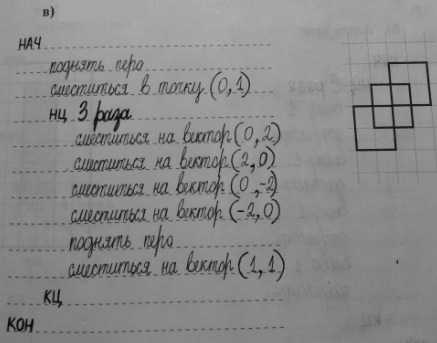 в)
нач
поднять перо
сместиться в точку (0,1)
нц 3 раза
сместиться на вектор (0, 2)
сместиться на вектор (2, 0)
сместиться на вектор (0, -2)
сместиться на вектор (-2, 0)
поднять перо
сместиться на вектор (1, 1)
кц
кон